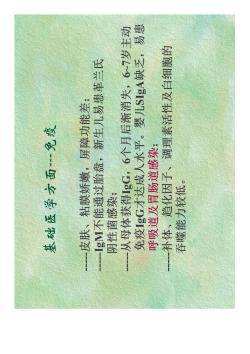 基础医学方面---免疫
-----皮肤、粘膜娇嫩，屏障功能差；
-----IgM不能通过胎盘，新生儿易患革兰氏
阴性菌感染；
-----从母体获得IgG，6个月后渐消失，6~7岁主动
免疫IgG才达成人水平。婴儿SIgA缺乏，易患
呼吸道及胃肠道感染；
-----补体、趋化因子、调理素活性及白细胞的
吞噬能力较低。